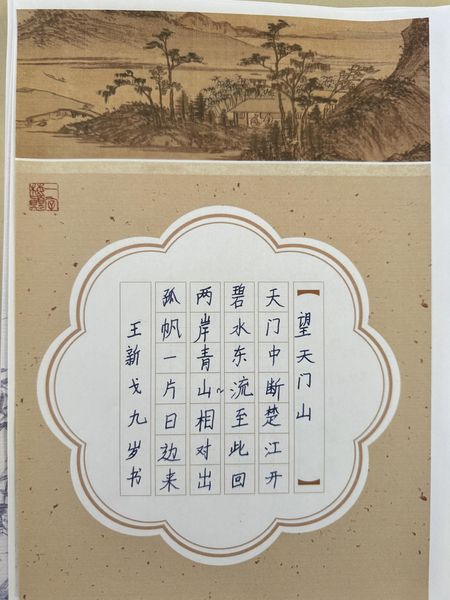 【望天门山】
天门中断楚江开
碧水东流至此回
两岸青山相对出
孤帆一片日边来
王新戈九岁书